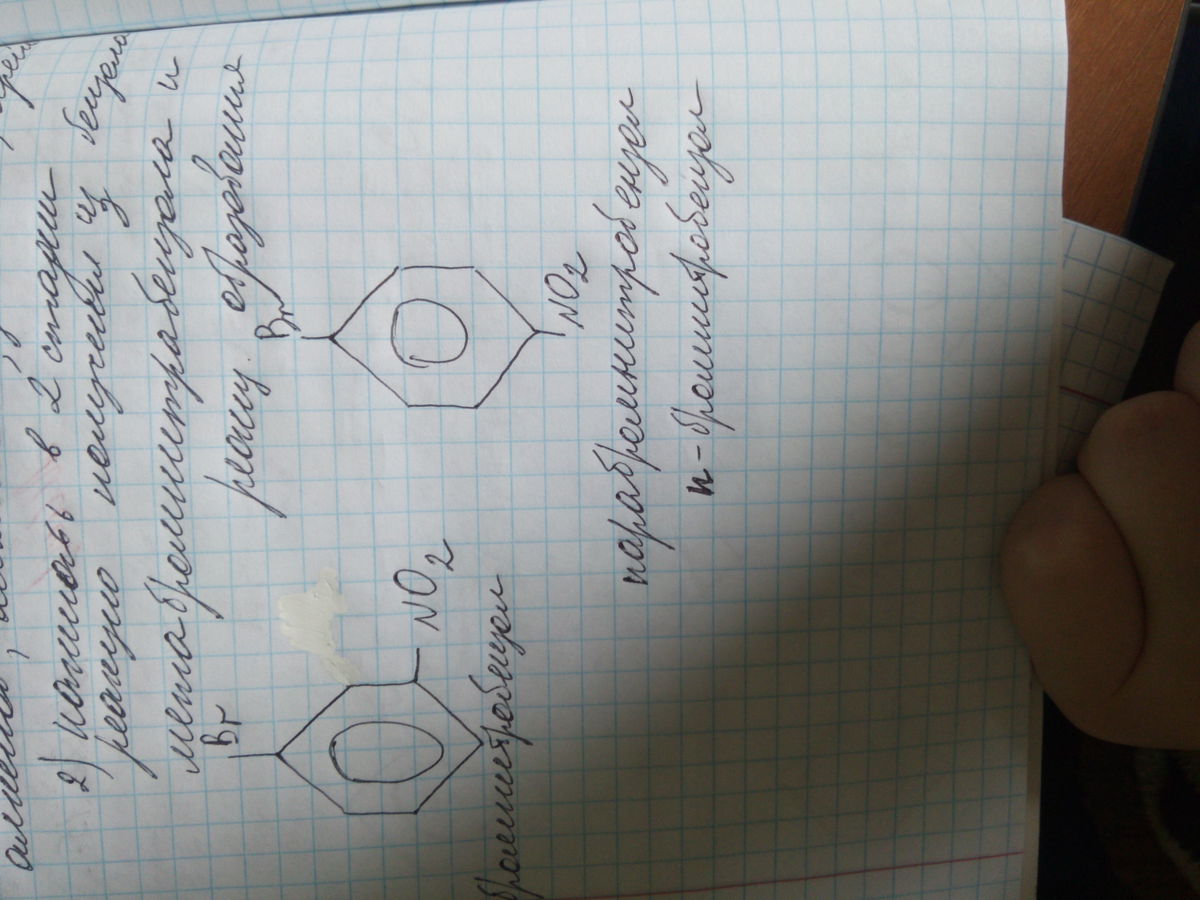 2) написать в 2 стадии
реакцию получения из бензола
метабромнитробензола и
реакц. образования
Br
Br
NO2
NO2
бромнитробензол
парабромнитробензол
п-бромнитробензол